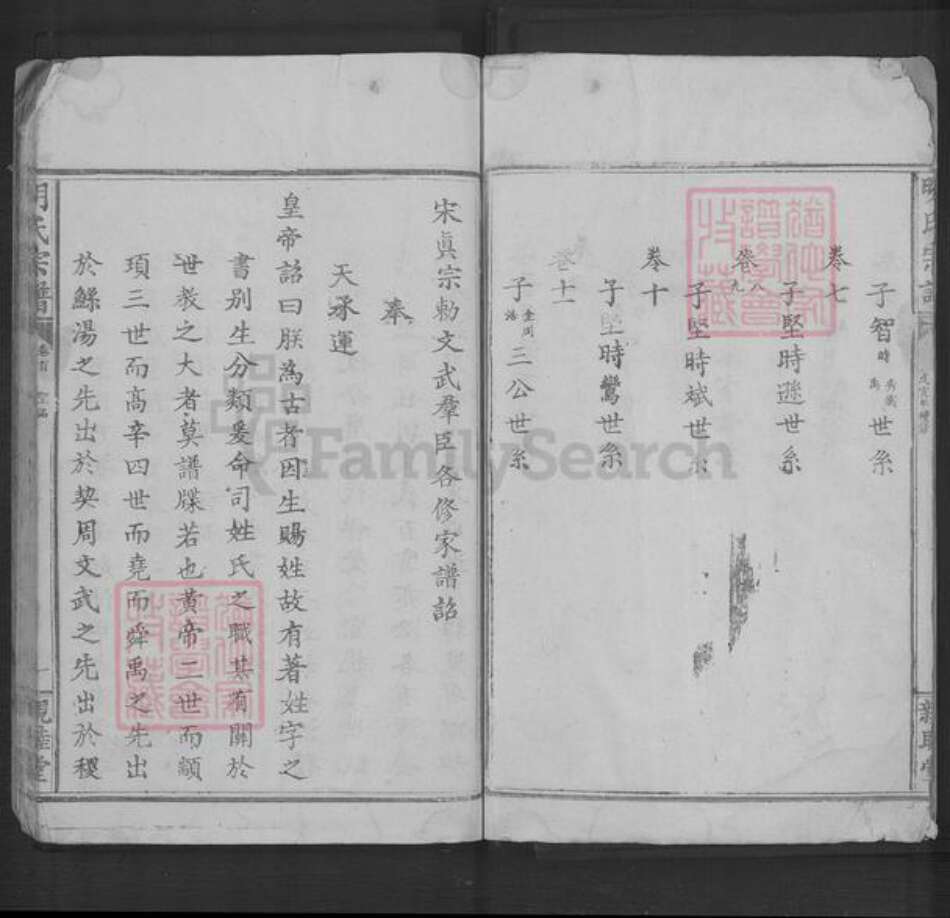 子智時世系
卷七
子堅時遜世系
卷八九
子堅時斌世系
卷十
子堅時鸞世系
卷十一
子三公世系
宋眞宗勅文武羣臣各修家譜詔
奉
天承運
皇帝詔曰朕為古者因生賜姓故有著姓字之
書別生分類爰命司姓氏之職其有關於
世教之大者莫譜牒若也黃帝二世而顓
頊三世而高辛四世而堯而舜禹之先出
於鯀湯之先出於契周文武之先出於稷
氏宗譜
親睦堂
FamilySearch